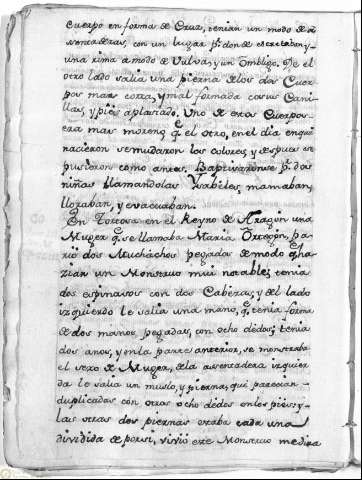 Cuerpo en forma de Cruz, tenian un modo de a
sentaderas, con un lugar pr. donde escretaban, y
una rima a modo de Vulva, y un ombligo. De el
otro lado salia una pierna de los dos Cuer
pos mas corta, y mal formada con sus Cani
llas, y pies aplastado. Uno de estos Cuerpos
era mas moreno q. el otro, en el dia en que
nacieron se mudaron los colores, y despues se
pusieron como antes. Baptizaronse pr. dos
niñas llamandolas Ysabeles, mamaban,
lloraban, y evacuaban.
En Tortosa en el Reyno de Aragon una
Muger q. se llamaba Maria Ortegon, pa
rió dos Muchachos pegados de modo q. ha
zian un Monstruo mui notable; tenia
dos espinasos con dos Cabezas, y del lado
izquierdo le salia una mano, q. tenia forma
de dos manos pegadas, con ocho dedos; tenia
dos anos, y en la parte anterior, se monstraba
el sexo de Muger, de la assentadera izquier
da le salia un muslo, y pierna, que parecian
duplicadas con otros ocho dedos en los pies, y
las otras dos piernas estaba cada una
dividida de por si, vivió este Monstruo media